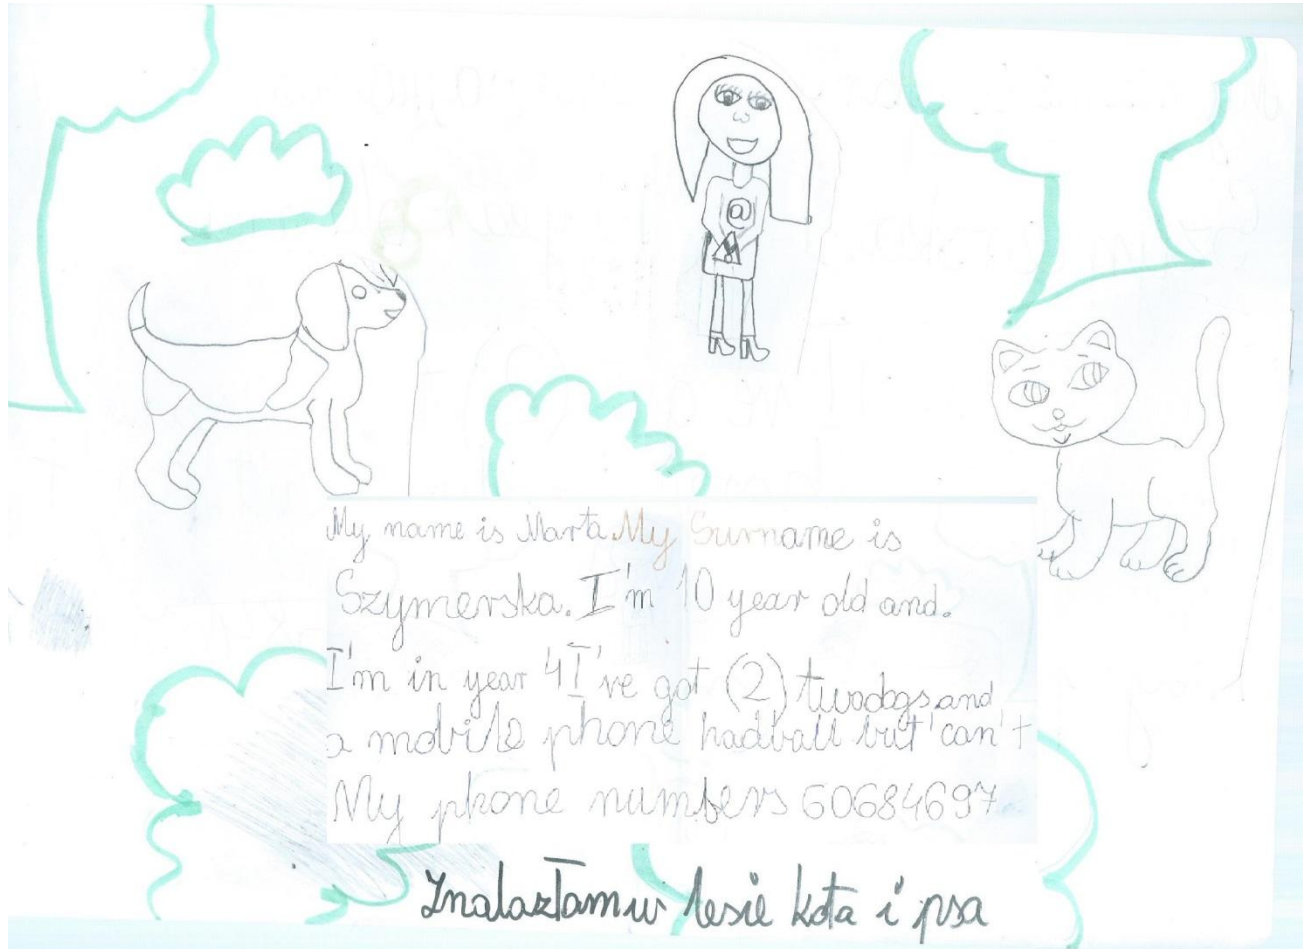 @
My name is Marta My Surname is
Szymerska. I'm 10 year old and.
I'm in year 4 I've got (2) twodogs and
a mobile phone hadball but can't
My phone numbers 60684697
Znalazłam w lesie kota i psa